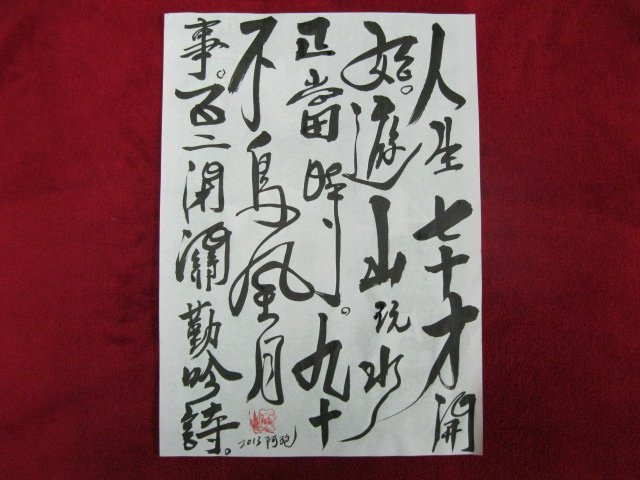 人生七十才開
始。遊山玩水
正當時。九十
不鳥風月
事。百二閑瀟勤吟詩。
2013 阿